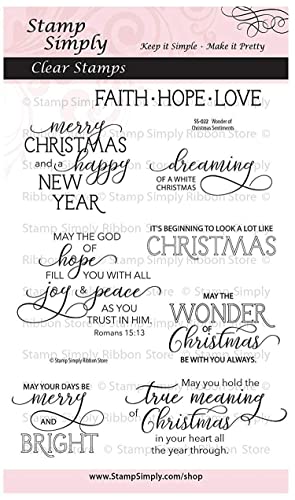 Stamp
Simply
Keep it Simple · Make it Pretty
Clear Stamps
FAITH · HOPE · LOVE
SS-022 Wonder of
Christmas Sentiments
merry
CHRISTMAS
and a happy
NEW
YEAR
dreaming
OF A WHITE
CHRISTMAS
MAY THE GOD
OF
hope
FILL YOU WITH ALL
joy & peace
AS YOU
TRUST IN HIM.
Romans 15:13
© Stamp Simply Ribbon Store
IT'S BEGINNING TO LOOK A LOT LIKE
CHRISTMAS
MAY THE
WONDER
OF
Christmas
BE WITH YOU ALWAYS.
MAY YOUR DAYS BE
merry
AND
BRIGHT
May you hold the
true meaning
of
Christmas
in your heart
all the year through.
© Stamp Simply Ribbon Store © Stamp Simply Ribbon Store ©
www.StampSimply.com/shop